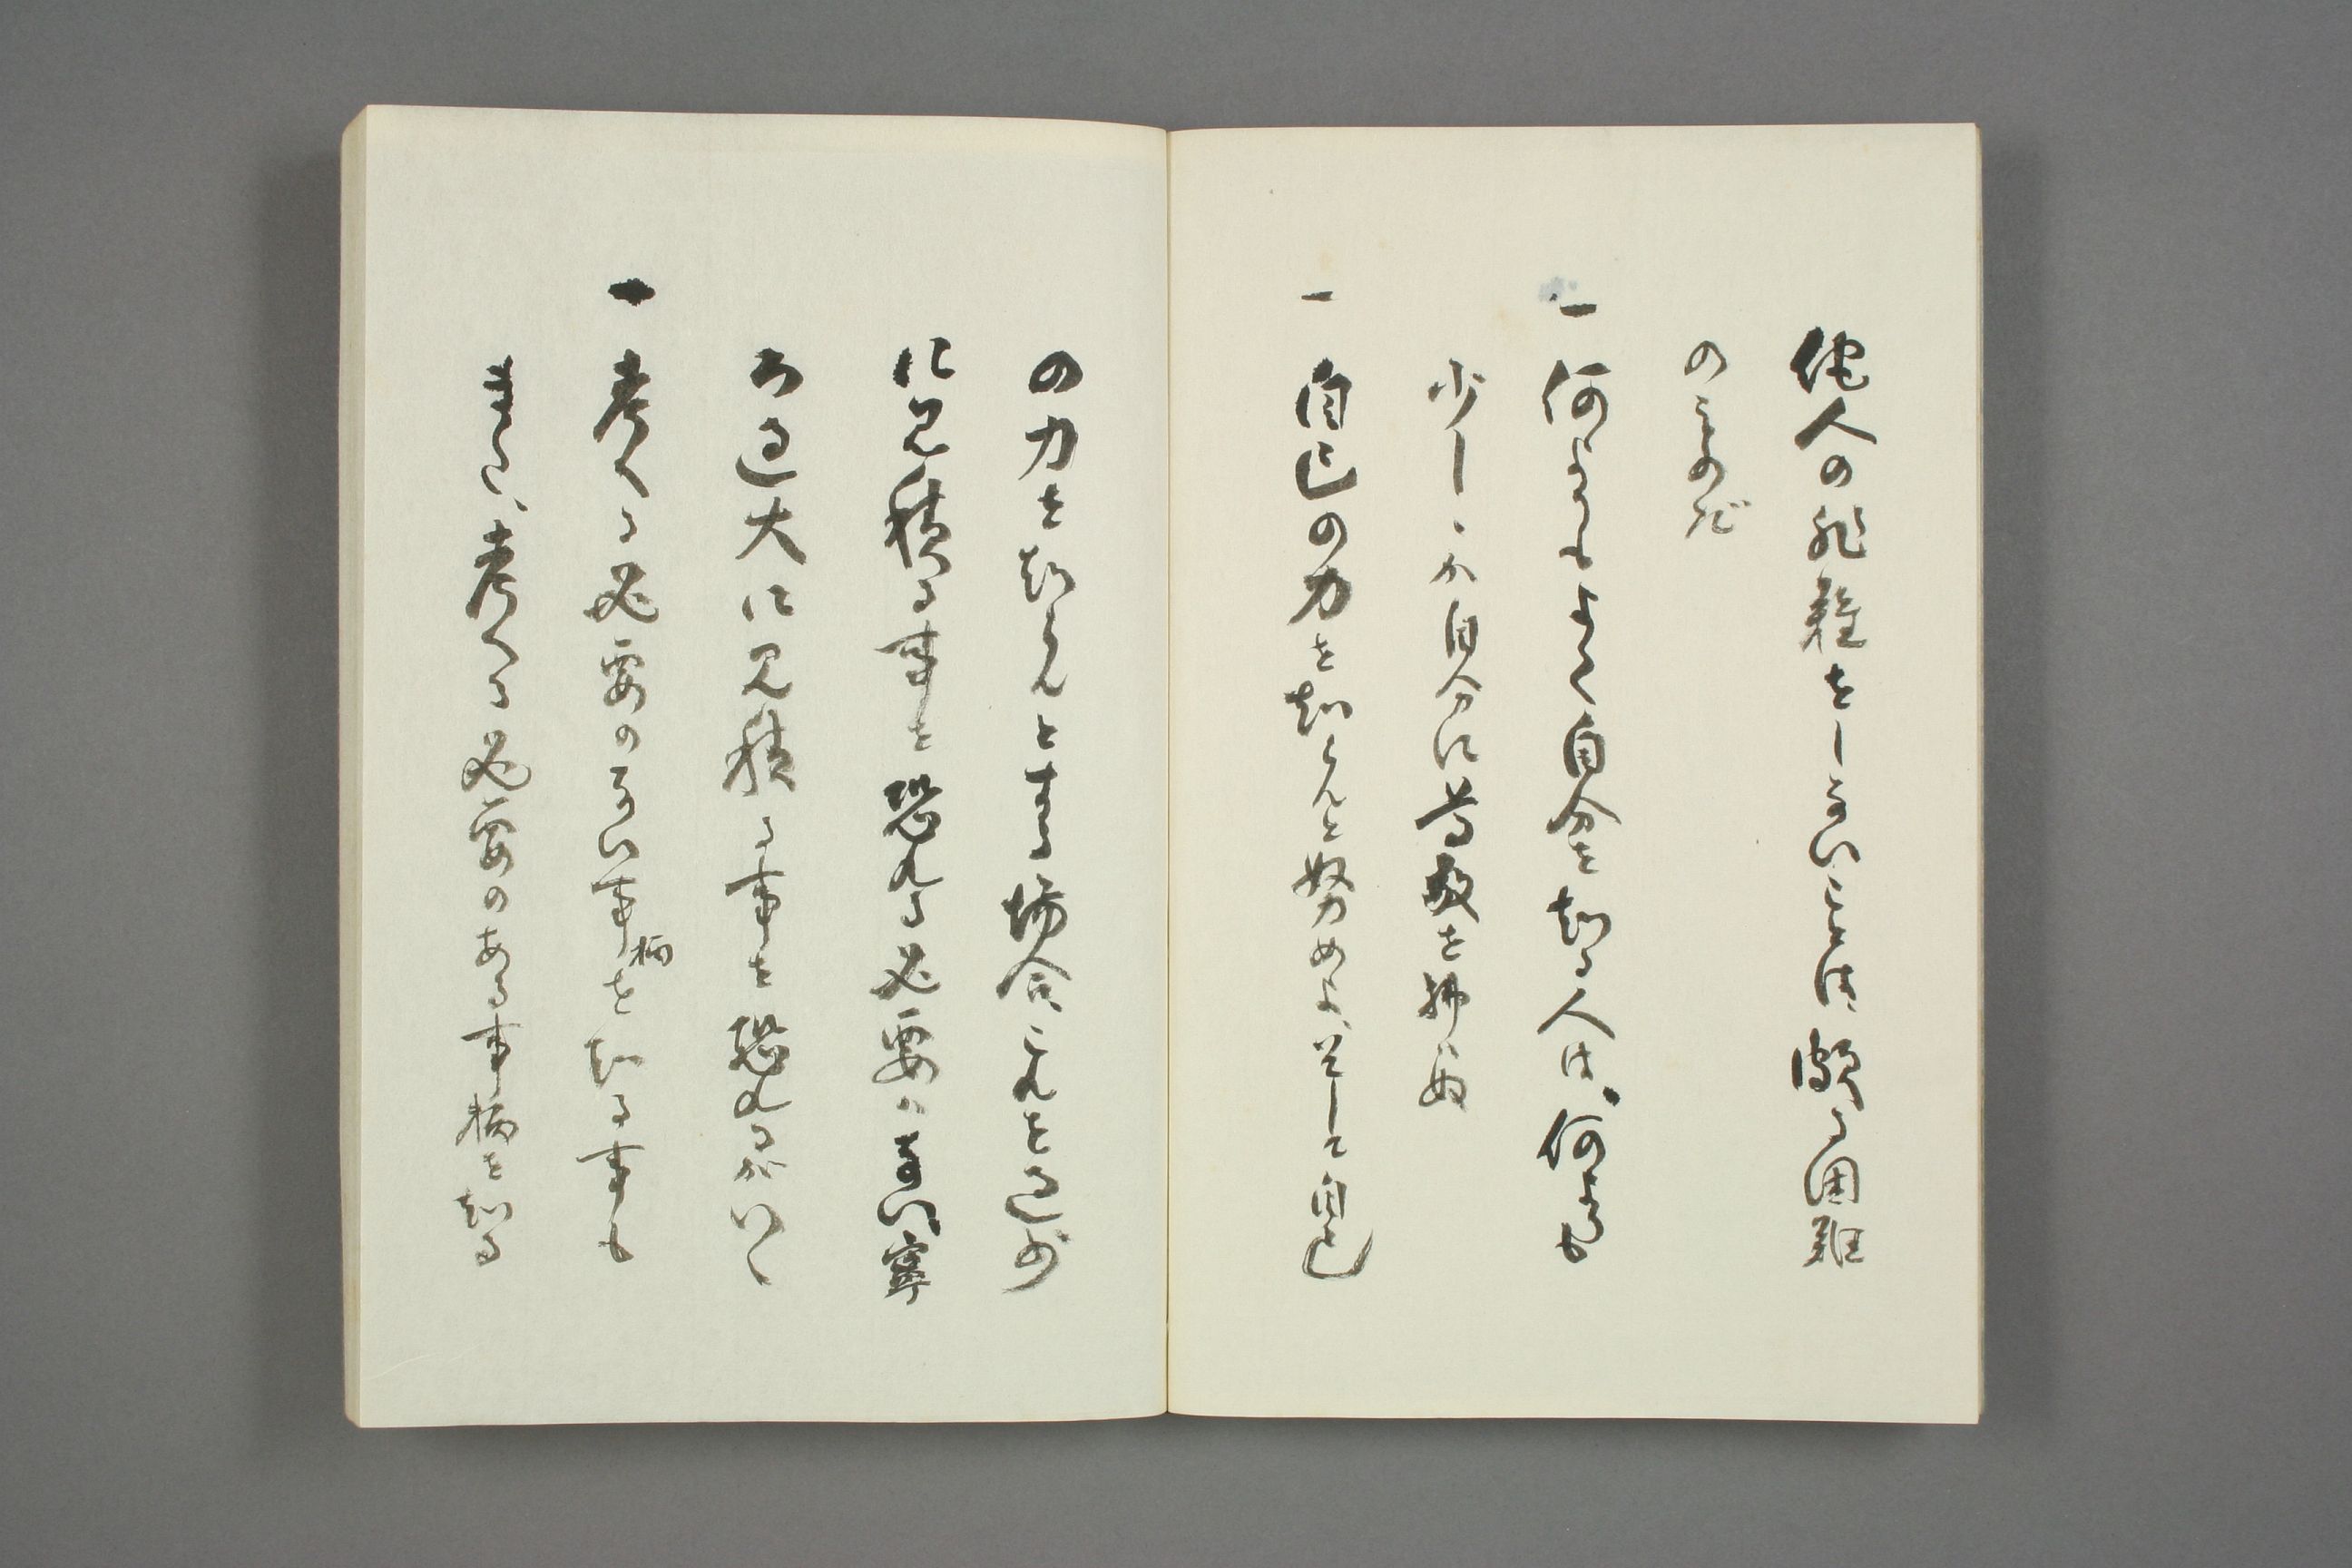 他人の非難をしないことは、頗る困難
のものだ
一 何よりもよく自分を知る人は、何よりも
少しゝか自分に尊敬を拂ぬ
一 自己の力を知らんと努めよ、そして自己
の力を知らんとする場合、これを過少
に見積る事を恐れる必要はない、寧
ろ過大に見積る事を恐れるがいゝ
一 考へる必要のない事柄を知る事も
また、考へる必要のある事柄を知る